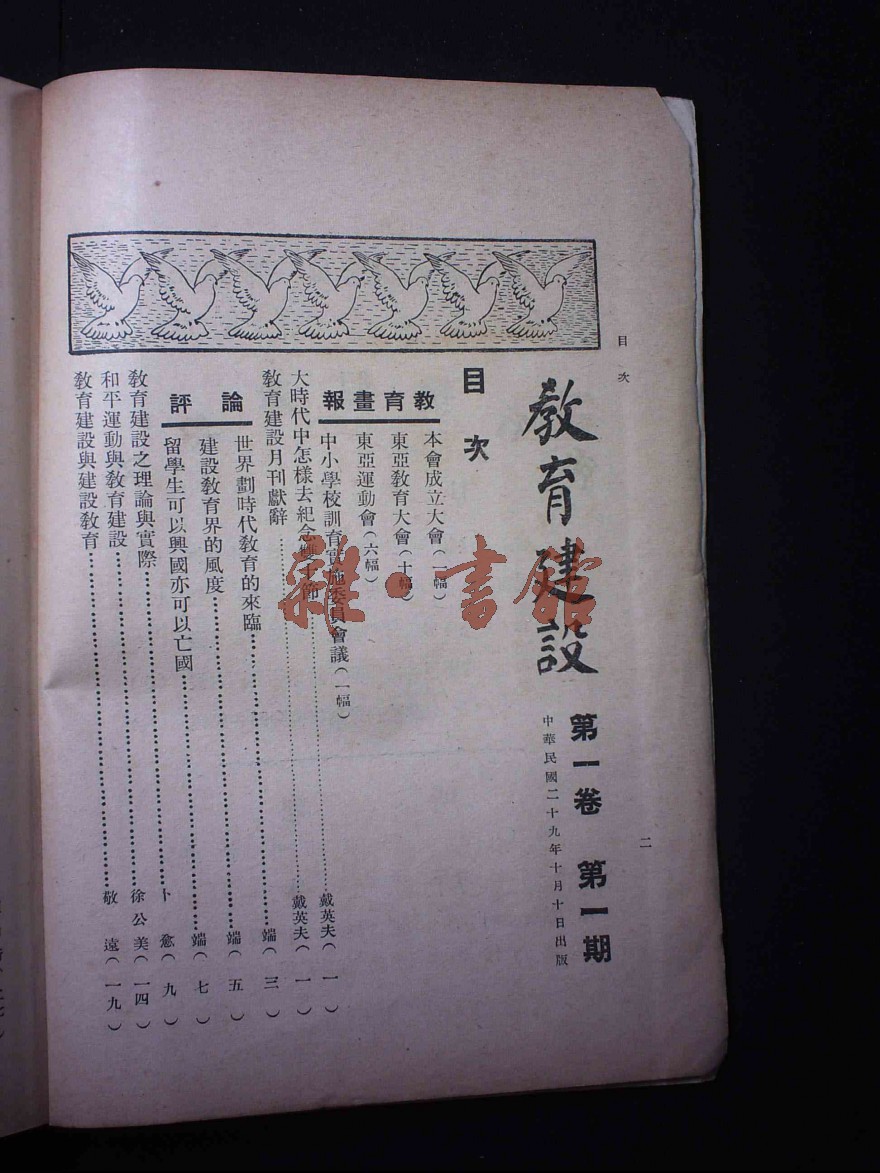 目次
二
教育建設 第一卷 第一期
中華民國二十九年十月十日出版
目次
教育畫報
本會成立大會(一幅)
東亞教育大會(十幅)
東亞運動會(六幅)
中小學校訓育實施委員會議(一幅)
大時代中怎樣去紀念雙十節……戴英夫(一)
教育建設月刊獻辭……戴英夫(一)
論評
世界劃時代教育的來臨……端(三)
建設教育界的風度……端(五)
留學生可以興國亦可以亡國……端(七)
教育建設之理論與實際……卜愈(九)
和平運動與教育建設……徐公美(一四)
教育建設與建設教育……敬遠(一九)
雜·書館